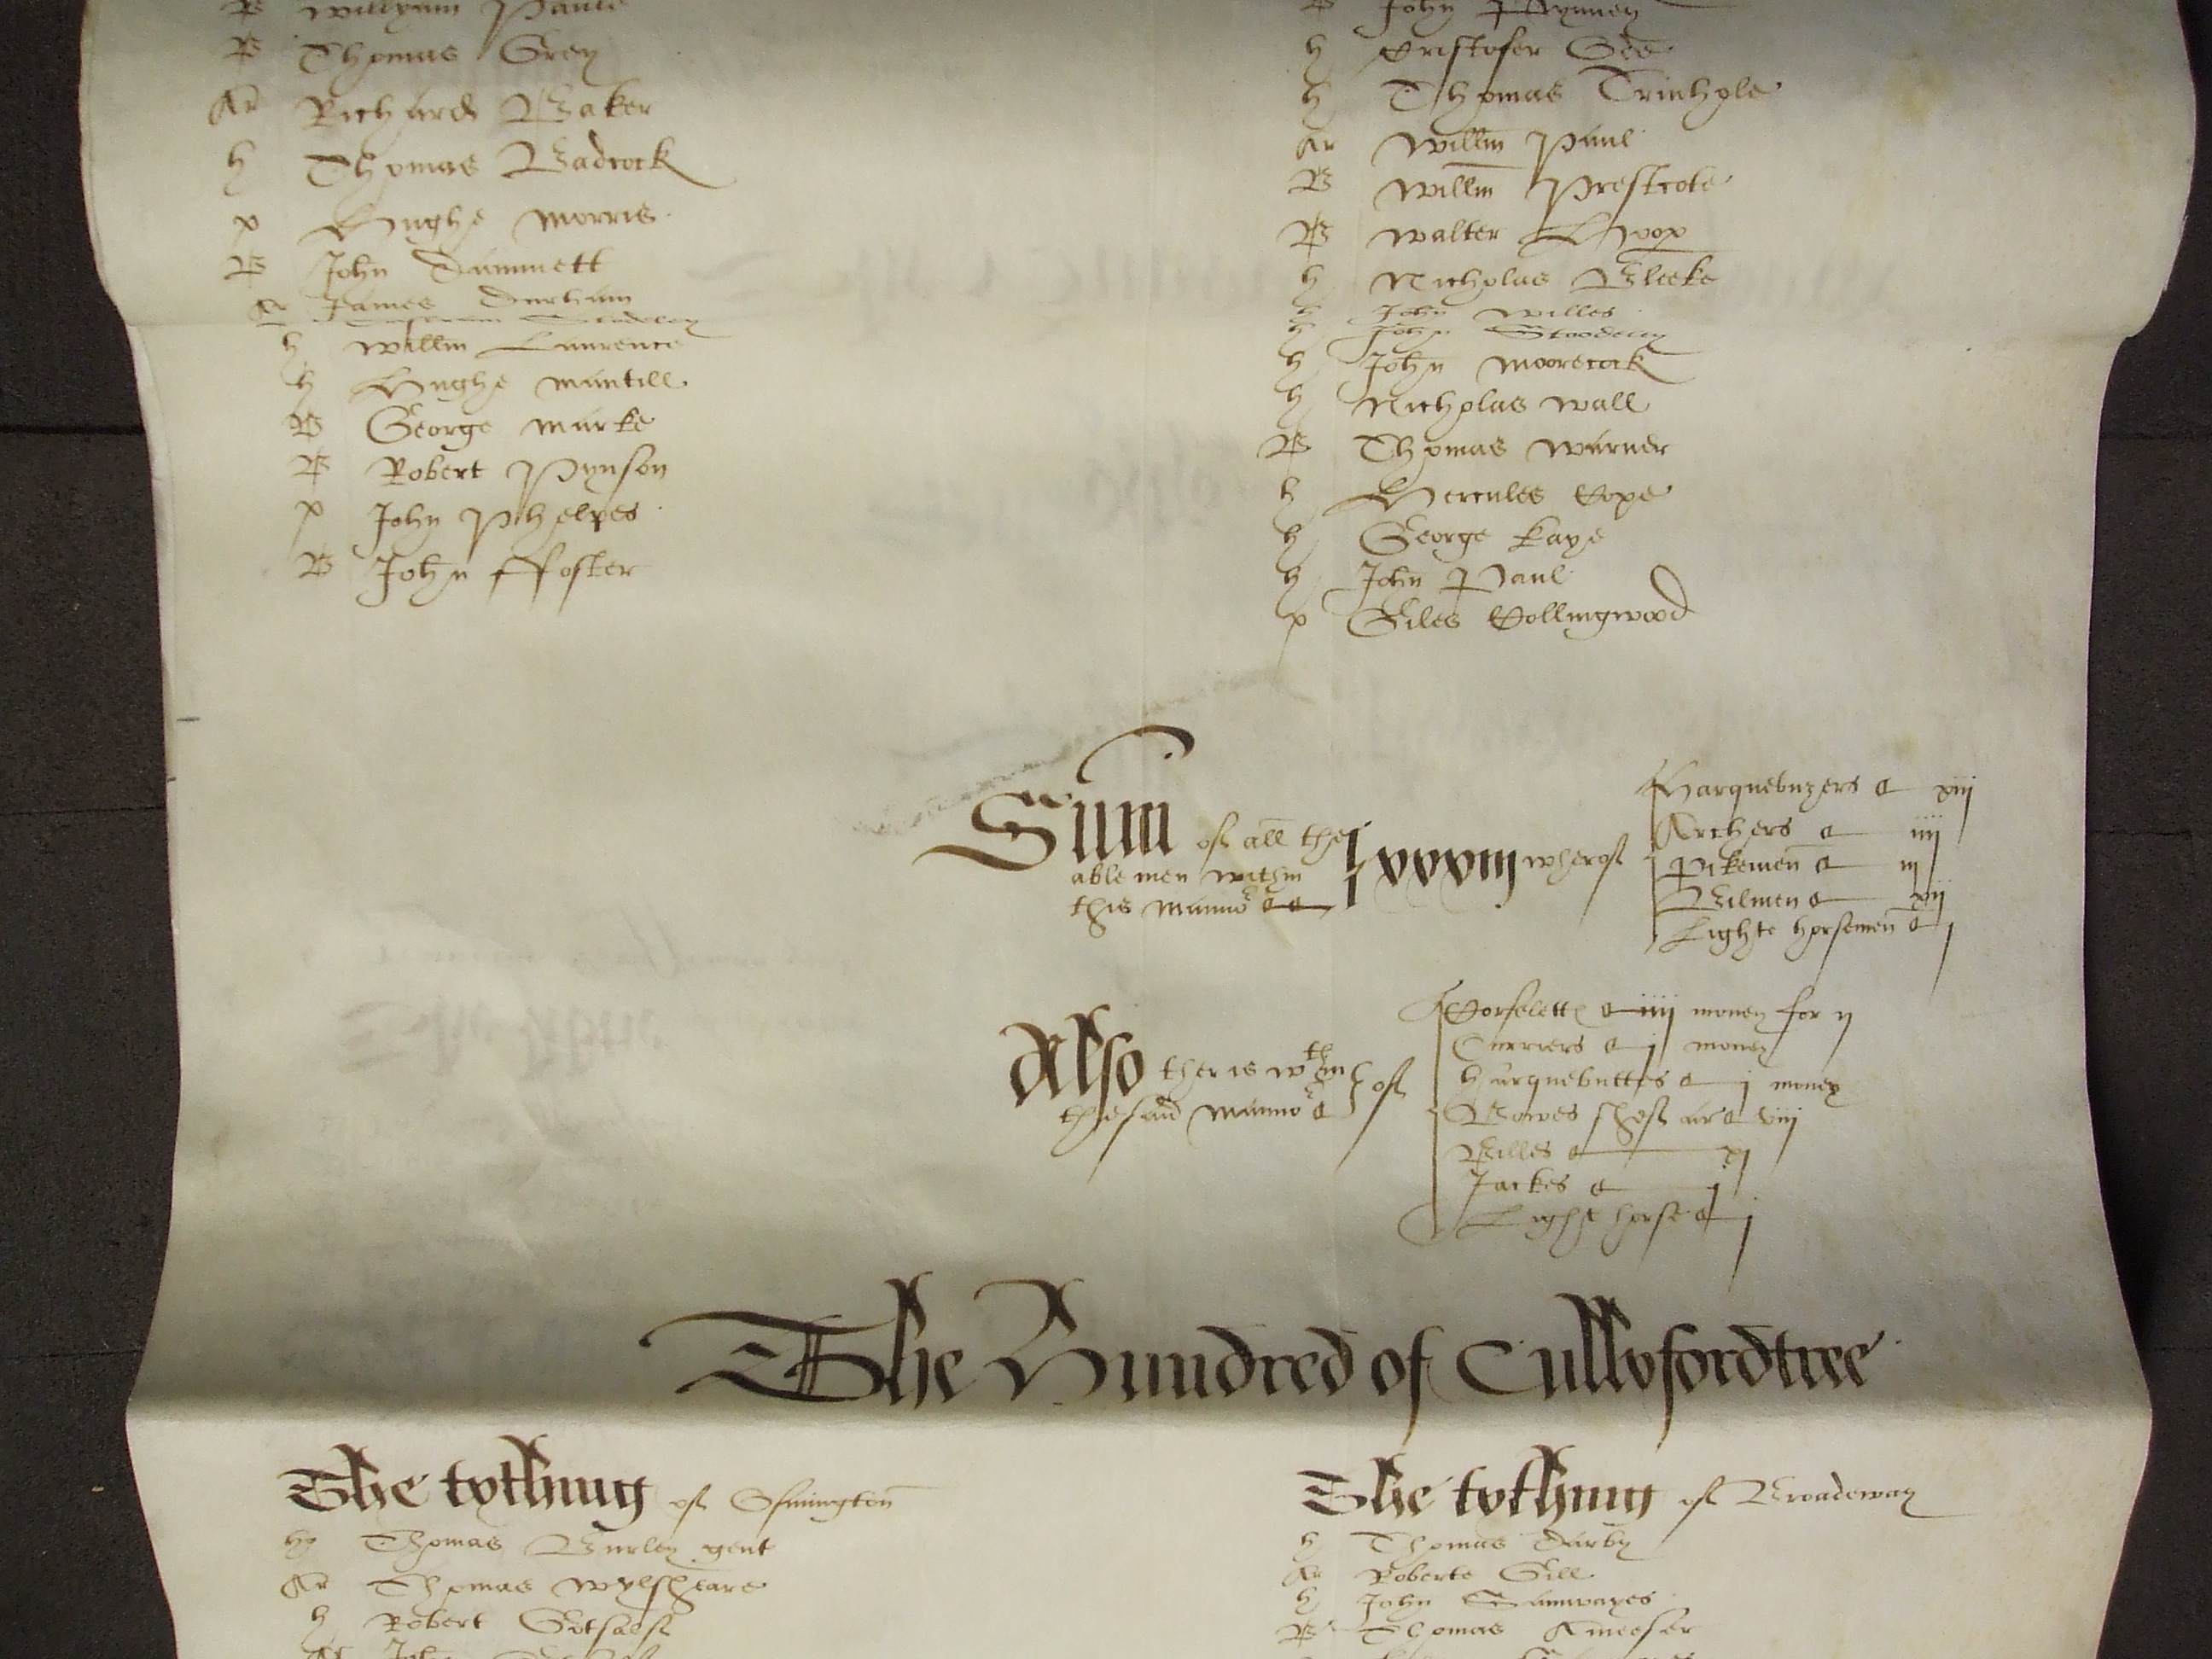 B Willyam Paule
B Thomas Grey
Ar Richard Baker
h Thomas Badcock
p Hughe Morris
B John Dammett
Ar James Durham
h Willm Laurence
h Hughe Mantill
B George Marke
B Robert Pynson
p John Phelpes
B John Ffoster
B John
h Cristofer Gee
h Thomas Trinhole
Ar Willm Paul
B Willm Prestcote
B Walter
h Nicholas Bleeke
h John Willes
h John Stoodeley
h John Moorecock
h Nicholas Wall
B Thomas Warner
h Hercules Cope
h George Kaye
h John Paul
p Giles Collingwood
Sum of all the
able men within
this Mannor
xxxviij wherof
Harquebuzers xiij
Archers iiij
Pikemen iij
Bilmen xvij
Lighte horsemen j
Also ther is wthin
the said Mannor
of
Corselett iiij money for ij
Curriers j money
harquebuttes j money
Bowes shef ar viij
Billes xj
Jackes j
Light horse j
The Hundred of Cullyfordtree
The tythyng of Osmington
hg Thomas Burley gent
Ar Thomas Wylsheare
h Robert
John
The tythyng of Broadeway
h Thomas Darby
Ar Roberte Gill
h John Samwayes
B Thomas